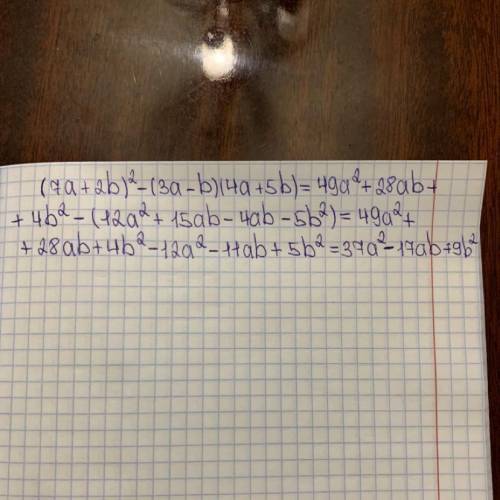 (7a+2b)²-(3a-b)(4a+5b)=49a²+28ab+
+4b²-(12a²+15ab-4ab-5b²)=49a²+
+28ab+4b²-12a²-11ab+5b²=37a²-17ab+9b²